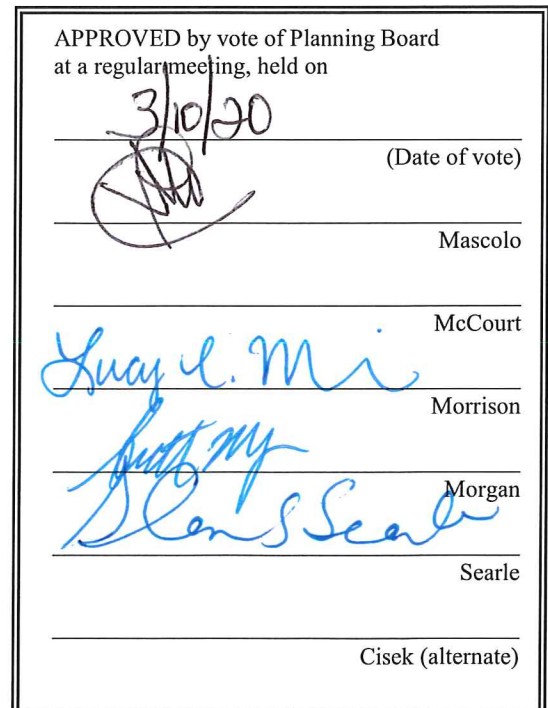 APPROVED by vote of Planning Board
at a regular meeting, held on
3/10/20
(Date of vote)
Mascolo
McCourt
Lucy C. M
Morrison
Scott
Morgan
S Searle
Searle
Cisek (alternate)